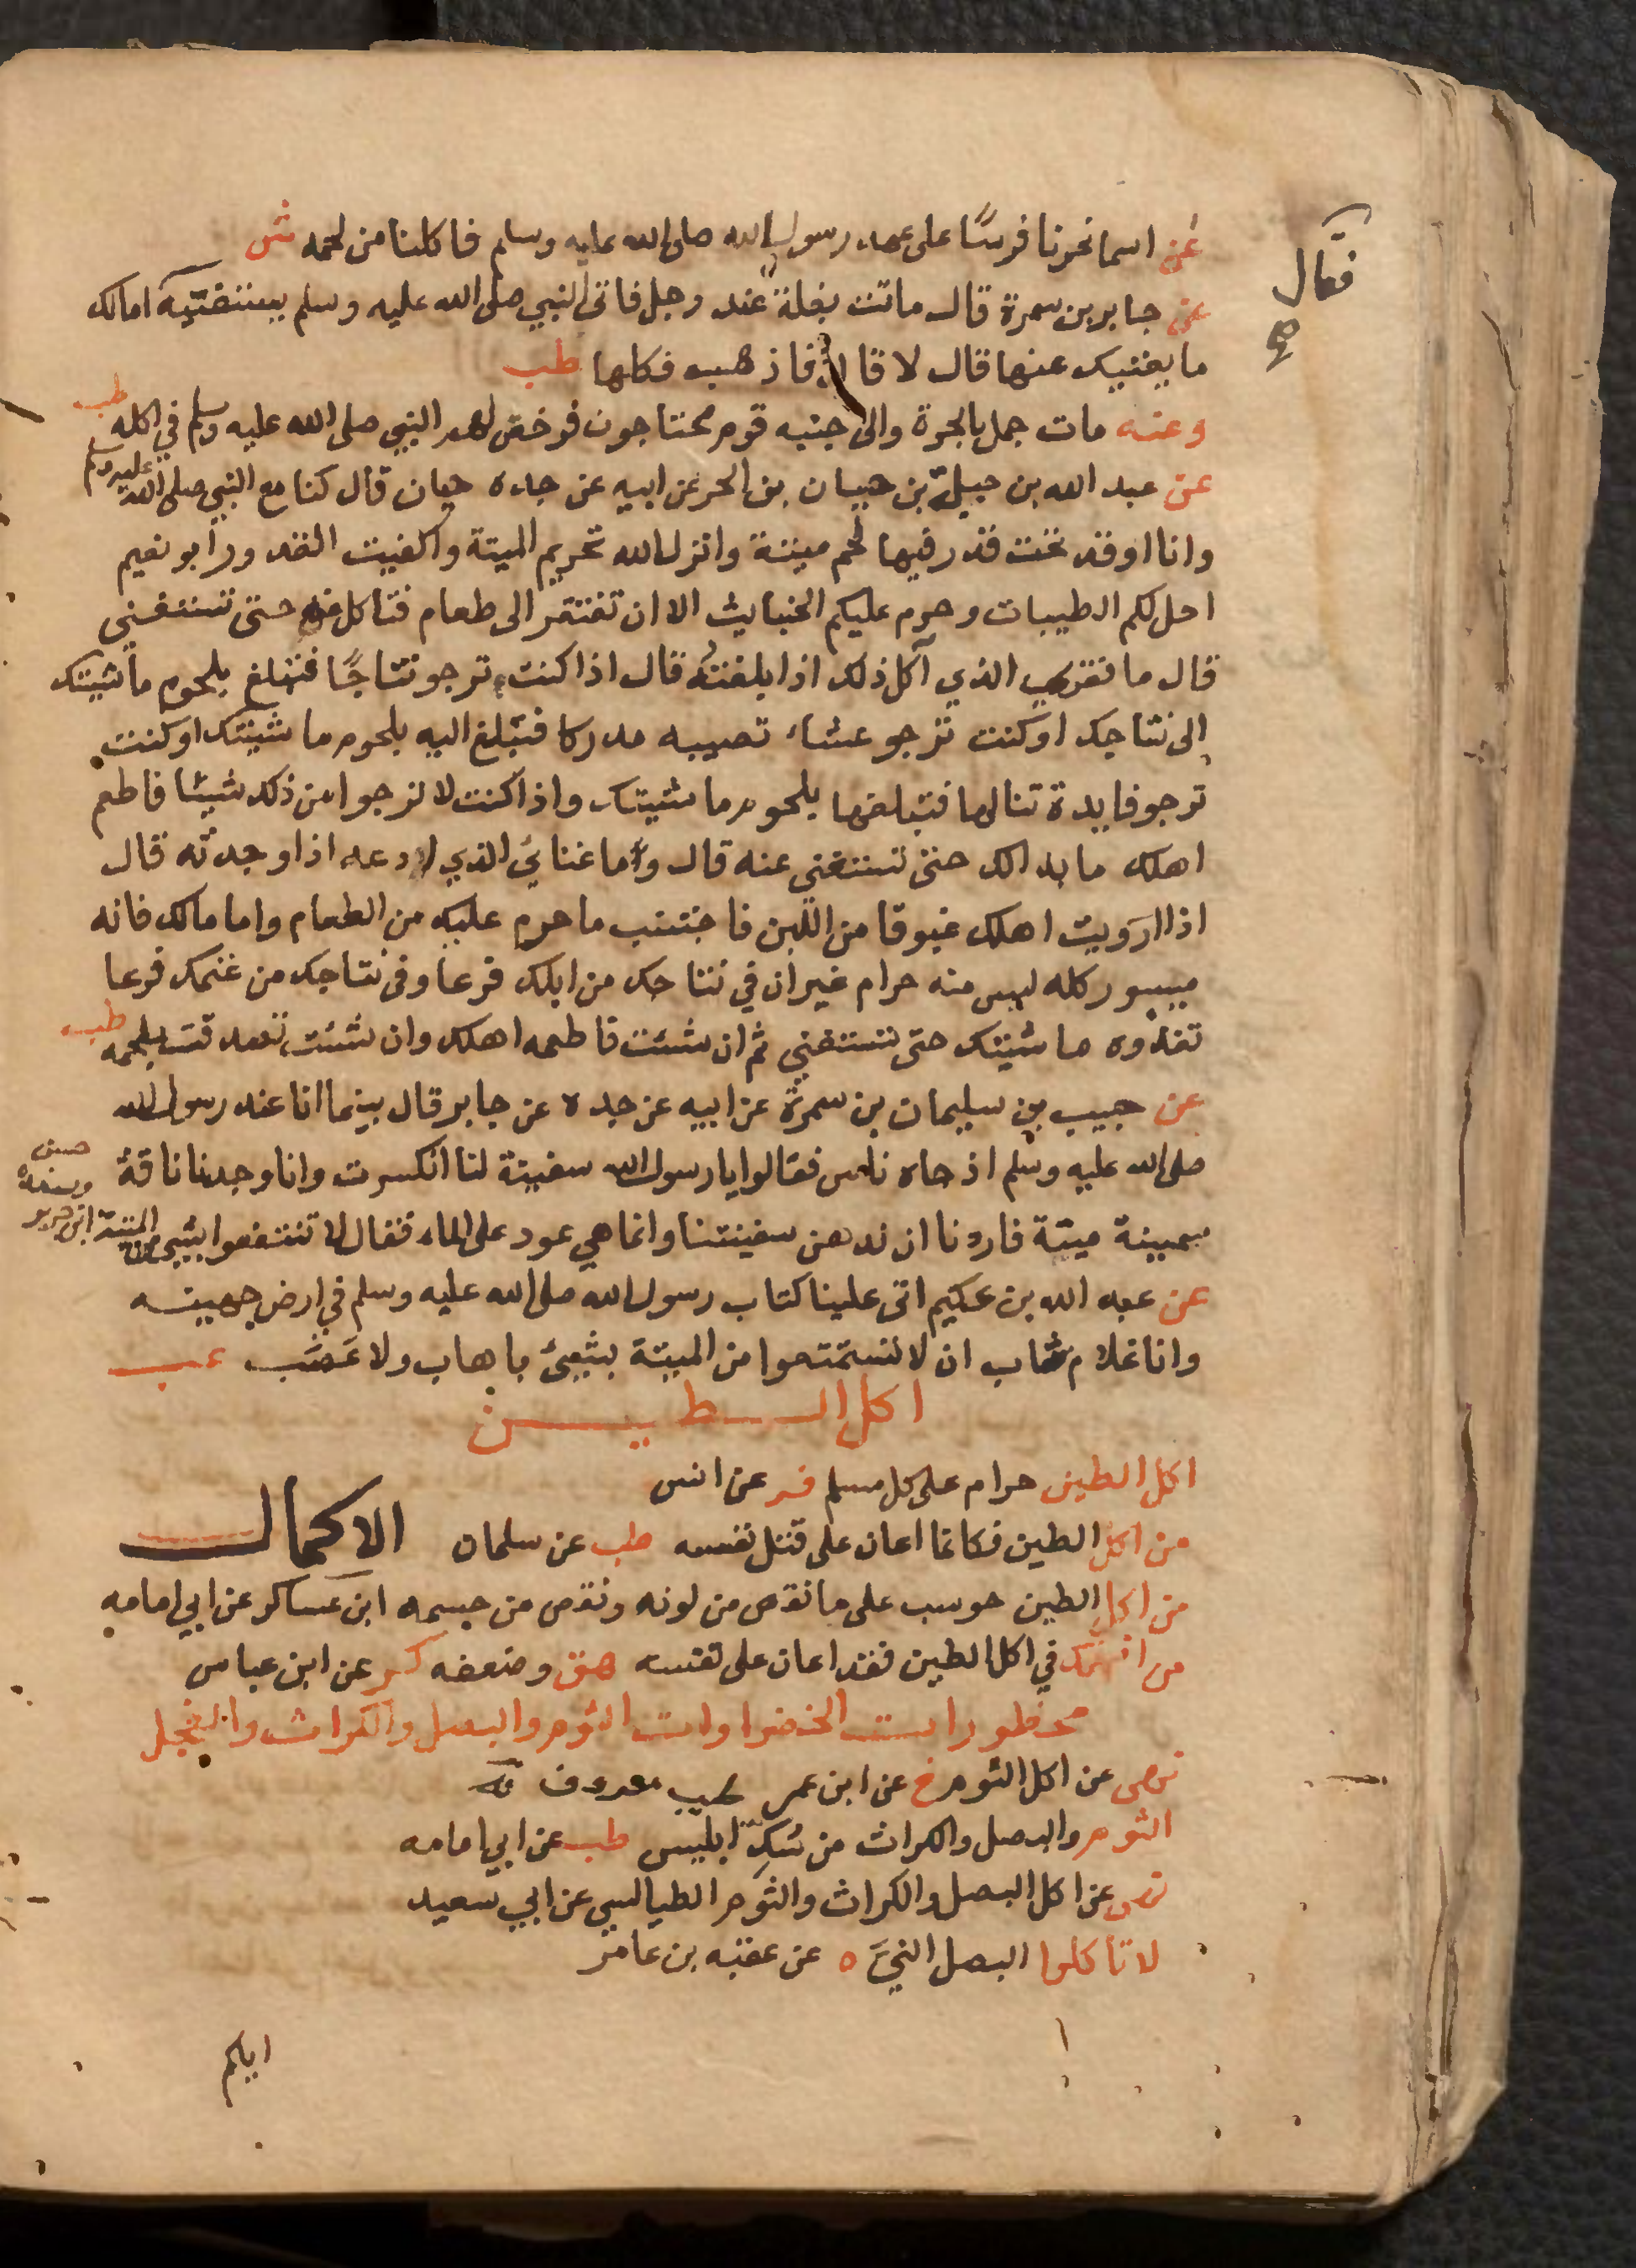 عن اسما نحرنا فرسًا على عهد رسول الله صلى الله عليه وسلم فاكلنا من لحمه ش
عن جابر بن سمرة قال ماتت بغلة عند رجل فاتى النبي صلى الله عليه وسلم يستفتيه امالك
فقال
صح
ما يغنيك عنها قال لا قال فاذهب فكلها طب
وعنه مات جمل بالحرة والى جنبه قوم محتاجون فرخص لهم النبي صلى الله عليه وسلم في اكله طب
عن عبد الله بن جبلة بن حيان بن الحر عن ابيه عن جده حيان قال كنا مع النبي صلى الله عليه وسلم
وانا اوقد تحت قدر فيها لحم ميتة وانزل الله تحريم الميتة واكفيت القدور ابو نعيم
احل لكم الطيبات وحرم عليكم الخبايث الا ان تفتقر الى طعام فتاكل منه حتى تستغني
قال ما فقري الذي آكل ذلك اذا بلغته قال اذا كنت ترجو نتاجًا فتبلغ بلحوم ماشيتك
الى نتاجك او كنت ترجو عشاء تصيبه مدركا فتبلغ اليه بلحوم ماشيتك او كنت
ترجو فايدة تنالها فتبلغها بلحوم ماشيتك واذا كنت لا ترجوا من ذلك شيئا فاطعم
اهلك ما بدالك حتى تستغني عنه قال وما غناي الذي ادعه اذا وجدته قال
اذا ارويت اهلك غبوقا من اللبن فاجتنب ما حرم عليك من الطعام واما مالك فانه
ميسور كله ليس منه حرام غير ان في نتاجك من ابلك فرعا وفي نتاجك من غنمك فرعا
تغذوه ماشيتك حتى تستغني ثم ان شئت فاطعمه اهلك وان شئت تصدقت بلحمه طب
عن حبيب بن سليمان بن سمرة عن ابيه عن جده عن جابر قال بينما انا عند رسول الله
صلى الله عليه وسلم اذ جاه ناس فقالوا يا رسول الله سفينة لنا انكسرت وانا وجدنا ناقة
سمينة ميتة فاردنا ان ندهن سفينتنا وانما هي عود على الماء فقال لا تنتفعوا بشيء من الميتة ابن جرير
عن عبد الله بن عكيم اتى علينا كتاب رسول الله صلى الله عليه وسلم في ارض جهينه
وانا غلام شاب ان لا تستمتعوا من الميتة بشيئ باهاب ولا عصب عب
اكل الطين
اكل الطين حرام على كل مسلم فر عن انس
من اكل الطين فكانما اعان على قتل نفسه طب عن سلمان الاكمال
من اكل الطين حوسب على ما نقص من لونه ونقص من جسمه ابن عساكر عن ابي امامه
من انهمك في اكل الطين فقد اعان على نفسه هق وضعفه كر عن ابن عباس
محظورات الخضراوات الثوم والبصل والكراث والفجل
نهى عن اكل الثوم خ عن ابن عمر
الثوم والبصل والكراث من سك ابليس طب عن ابي امامه
نهى عن اكل البصل والكراث والثوم الطيالسي عن ابي سعيد
لا تاكلوا البصل النيء ه عن عقبه بن عامر
اياكم